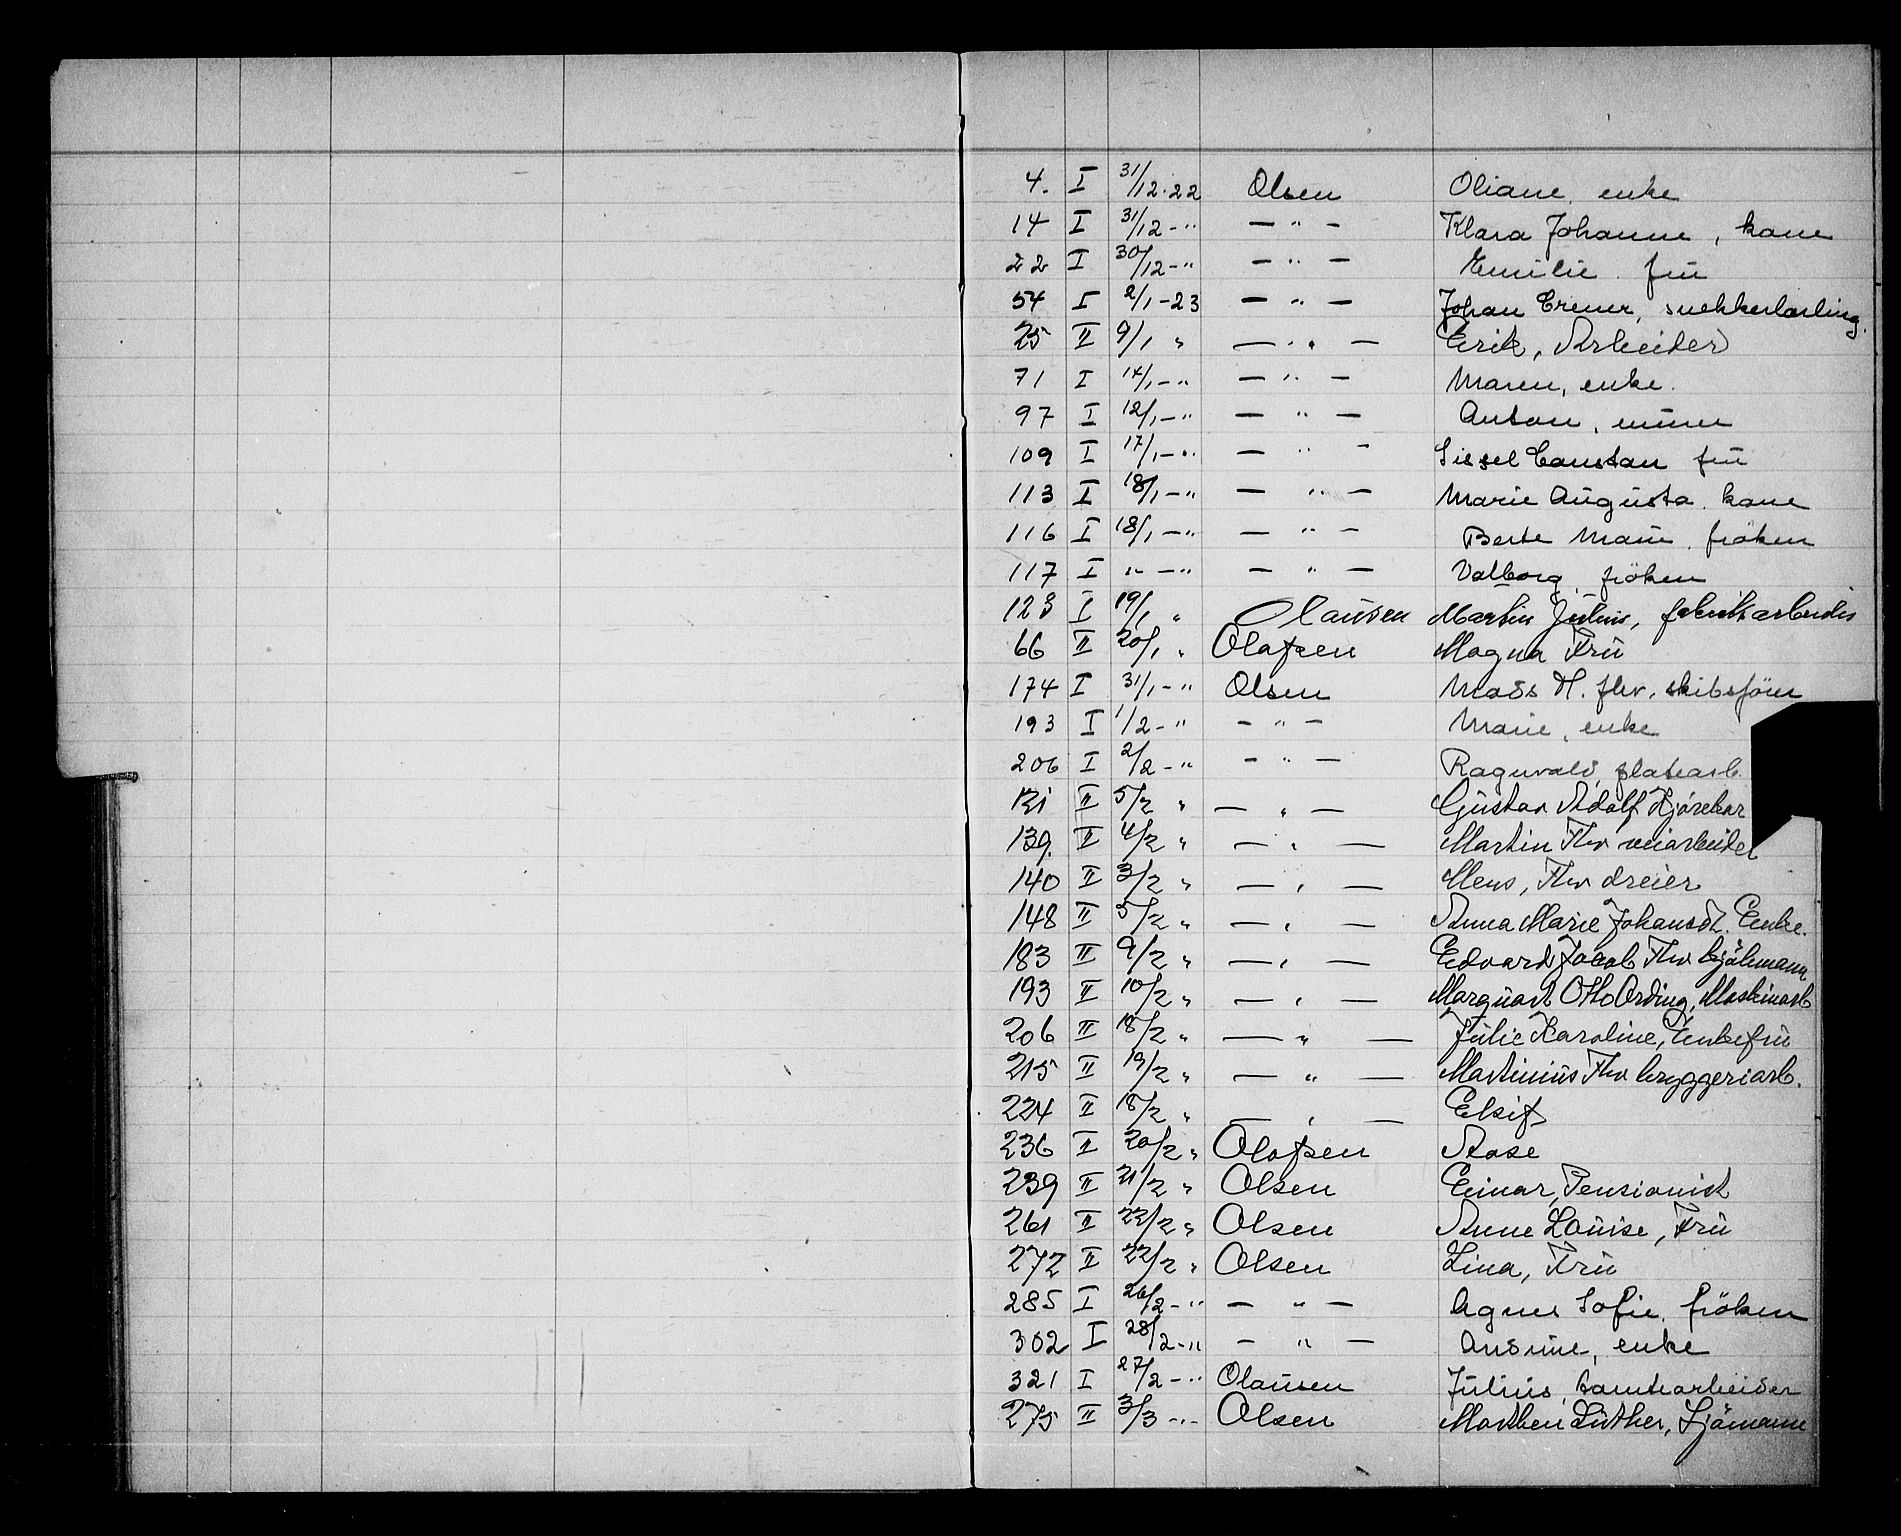 4. I 31/12-22 Olsen Oliane, enke
14 I 31/12-" — " — Klara Johanne, kone
22 I 30/12-" — " — Emilie. frü
54 I 2/1-23 — " — Johan Breuer, snekkerlærling.
25 II 9/1 " — " — Erik, Arbeider
71 I 14/1-" — " — Maren, enke.
97 I 12/1-" — " — Anton, mürer
109 I 17/1-" — " — Sissel Constan frü
113 I 18/1-" — " — Marie Aügüsta. kone
116 I 18/1-" — " — Berte Marie. fröken
117 I " -" — " — Valborg, fröken
123 I 19/1 " Olaüsen Martin Jülius, fabrikarbeider
66 II 20/1 " Olafsen Magna Frü
174 I 31/1-" Olsen Mads H. fhv. skibsförer
193 I 1/2-" — " — Marie, enke
206 I 2/2-" — " — Ragnvald, platearb.
121 II 5/2 " — " — Güstav Adolf Kjörekar
139. II 4/2 " — " — Martin Fhv veiarbeider
140 II 3/2 " — " — Mens, Fhv dreier
148 II 5/2 " — " — Anna Marie Johansdt. Enke.
183 II 9/2 " — " — Edvard Jacob Fhv kjöbmann
193 II 10/2 " — " — Marqüart Otto Arding, Maskinarb
206 II 18/2 " — " — Jülie Karoline, Enkefrü
215 II 19/2 " — " — Martinius Fhv bryggeriarb.
224 II 18/2 " — " — Elsif
236 II 20/2 " Olafsen Aase
239 II 21/2 " Olsen Einar, Pensionist
261 II 22/2 " Olsen Anne Loüise, Frü
272 II 22/2 " Olsen Lina, Frü
285 I 26/2-" — " — Agnes Sofie. fröken
302 I 28/2-" — " — Andrine, enke
321 I 27/2-" Olaüsen Jülius, tomtearbeider
275 II 3/3-"- Olsen Marthen Lüther, Sjömann